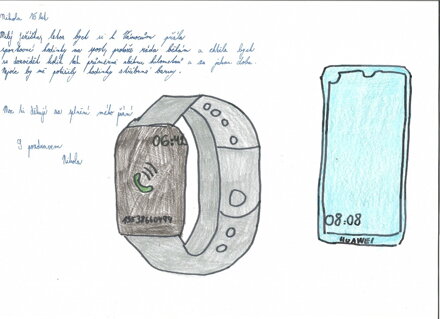 Nikola 16 let
Milý Ježíšku, letos bych si k Vánocům přála
sportovní hodinky na sporty protože ráda běhám a chtěla bych
se dozvědět kolik tak průměrně uběhnu kilometrů a za jakou dobu.
Nejvíc by mě potěšily hodinky stříbrné barvy.
Moc ti děkuji za splnění mého přání
S pozdravem
Nikola
06:41
08:08
HUAWEI